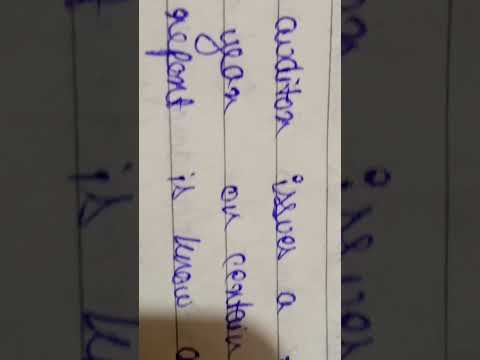 auditor issues a
year on contain
report is know a